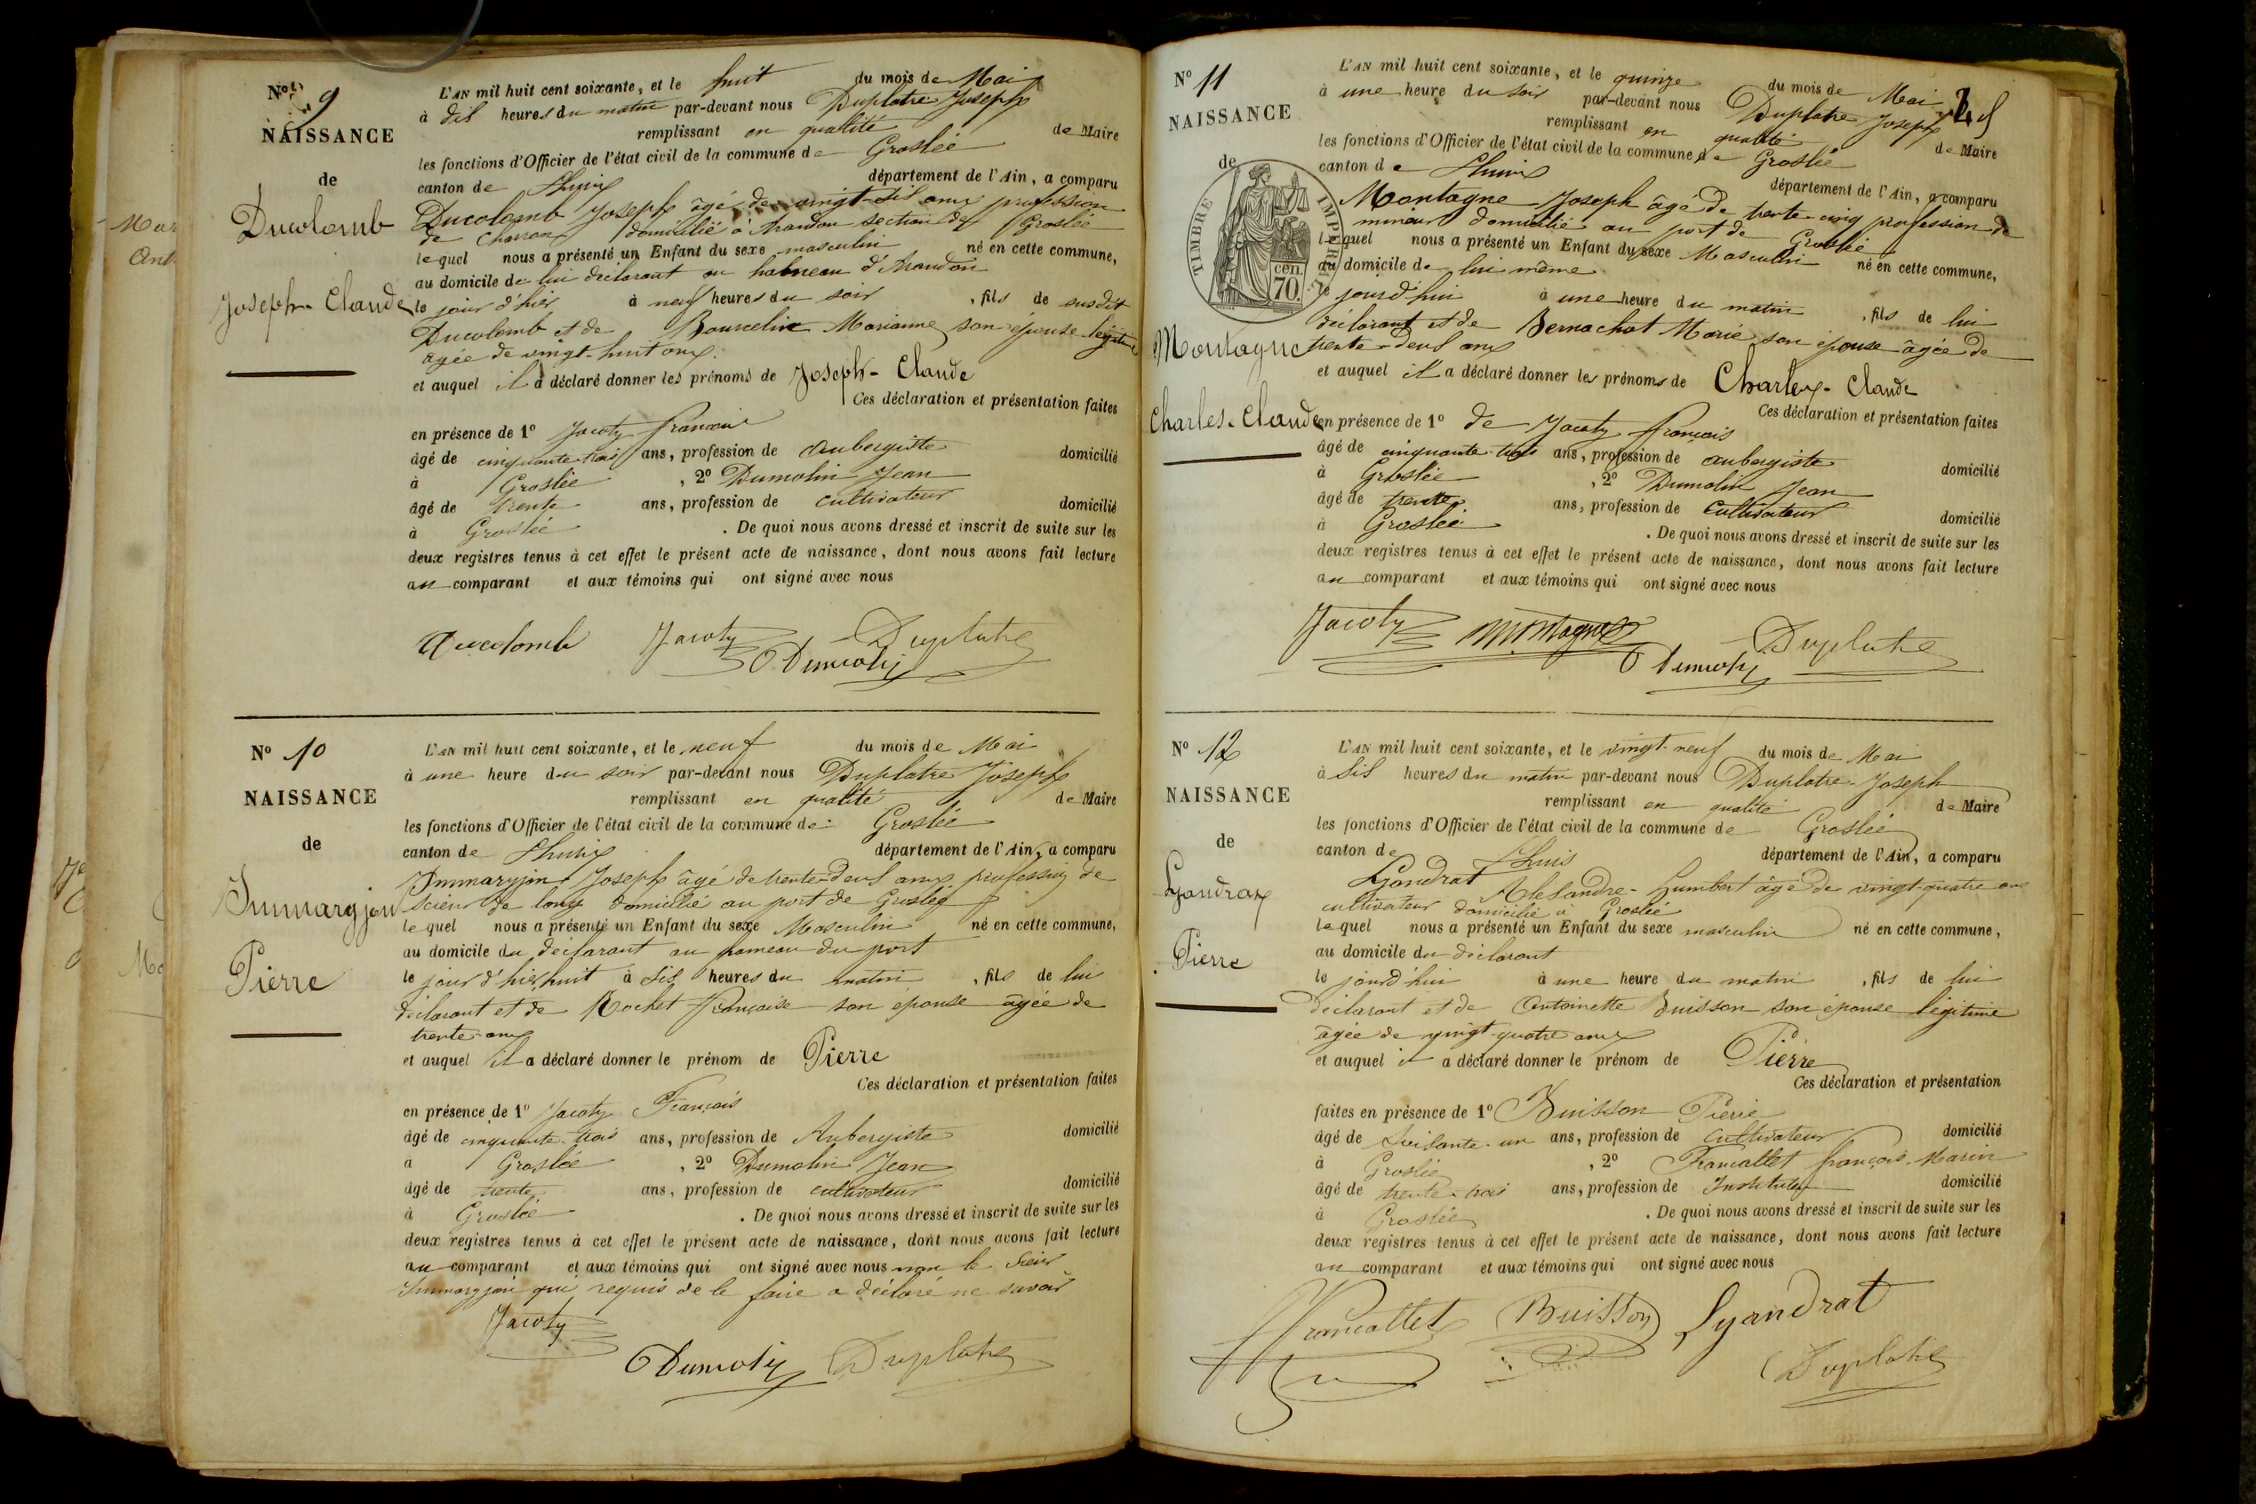 N° 9
NAISSANCE
de
Ducolomb
Joseph-Claude
L'AN mil huit cent soixante, et le huit du mois de Mai
à dix heures du matin par-devant nous Duplatre Joseph
remplissant en qualité de Maire
les fonctions d'Officier de l'état civil de la commune de Groslée
canton de Lhuis département de l'Ain, a comparu
Ducolomb Joseph âgé de vingt-six ans profession
de Charron domicilié à Arandon section de Groslée
lequel nous a présenté un Enfant du sexe masculin né en cette commune,
au domicile de lui déclarant au hameau d'Arandon
le jour d'hier à neuf heures du soir, fils de susdit
Ducolomb et de Marianne son épouse légitime
âgée de vingt-huit ans.
et auquel il a déclaré donner les prénoms de Joseph-Claude
Ces déclaration et présentation faites
en présence de 1° Jacoty François
âgé de cinquante-trois ans, profession de Aubergiste domicilié
à Groslée, 2° Dumolin Jean
âgé de trente ans, profession de cultivateur domicilié
à Groslée. De quoi nous avons dressé et inscrit de suite sur les
deux registres tenus à cet effet le présent acte de naissance, dont nous avons fait lecture
au comparant et aux témoins qui ont signé avec nous
Ducolomb Jacoty Duplatre
Dumolin
N° 10
NAISSANCE
de
Immarygeon
Pierre
L'AN mil huit cent soixante, et le neuf du mois de Mai
à une heure du soir par-devant nous Duplatre Joseph
remplissant en qualité de Maire
les fonctions d'Officier de l'état civil de la commune de Groslée
canton de Lhuis département de l'Ain, a comparu
Joseph âgé de trente-deux ans profession de
scieur de long domicilié au port de Groslée
lequel nous a présenté un Enfant du sexe Masculin né en cette commune,
au domicile du déclarant au hameau du port
le jour d'hier huit à six heures du matin, fils de lui
déclarant et de Rochet Françoise son épouse âgée de
trente ans
et auquel il a déclaré donner le prénom de Pierre
Ces déclaration et présentation faites
en présence de 1° Jacoty François
âgé de cinquante-trois ans, profession de Aubergiste domicilié
à Groslée, 2° Dumolin Jean
âgé de trente ans, profession de cultivateur domicilié
à Groslée. De quoi nous avons dressé et inscrit de suite sur les
deux registres tenus à cet effet le présent acte de naissance, dont nous avons fait lecture
au comparant et aux témoins qui ont signé avec nous non le sieur
qui requis de le faire a déclaré ne savoir
Jacoty
Dumolin Duplatre
N° 11
NAISSANCE
de
TIMBRE IMPERIAL
CEN. 70.
Montagne
Charles-Claude
L'AN mil huit cent soixante, et le quinze du mois de Mai
à une heure du soir par-devant nous Duplatre Joseph
remplissant en qualité de Maire
les fonctions d'Officier de l'état civil de la commune de Groslée
canton de Lhuis département de l'Ain, a comparu
Montagne Joseph âgé de trente-cinq profession de
mineur domicilié au port de Groslée
lequel nous a présenté un Enfant du sexe Masculin né en cette commune,
au domicile de lui même
le jourd'hui à une heure du matin, fils de lui
déclarant et de Bernachot Marie son épouse âgée de
trente-deux ans
et auquel il a déclaré donner les prénoms de Charles-Claude
Ces déclaration et présentation faites
en présence de 1° de Jacoty François
âgé de cinquante-trois ans, profession de aubergiste domicilié
à Groslée, 2° Dumolin Jean
âgé de trente ans, profession de cultivateur domicilié
à Groslée. De quoi nous avons dressé et inscrit de suite sur les
deux registres tenus à cet effet le présent acte de naissance, dont nous avons fait lecture
au comparant et aux témoins qui ont signé avec nous
Jacoty Montagne Duplatre
Dumolin
N° 12
NAISSANCE
de
Lyandrat
Pierre
L'AN mil huit cent soixante, et le vingt-neuf du mois de Mai
à six heures du matin par-devant nous Duplatre Joseph
remplissant en qualité de Maire
les fonctions d'Officier de l'état civil de la commune de Groslée
canton de Lhuis département de l'Ain, a comparu
Lyandrat Alexandre-Humbert âgé de vingt-quatre ans
cultivateur domicilié à Groslée
lequel nous a présenté un Enfant du sexe masculin né en cette commune,
au domicile du déclarant
le jourd'hui à une heure du matin, fils de lui
déclarant et de Antoinette Buisson son épouse légitime
âgée de vingt-quatre ans
et auquel il a déclaré donner le prénom de Pierre
Ces déclaration et présentation
faites en présence de 1° Buisson Pierre
âgé de soixante-un ans, profession de cultivateur domicilié
à Groslée, 2° Francallet françois-Marin
âgé de trente-trois ans, profession de Instituteur domicilié
à Groslée. De quoi nous avons dressé et inscrit de suite sur les
deux registres tenus à cet effet le présent acte de naissance, dont nous avons fait lecture
au comparant et aux témoins qui ont signé avec nous
Francallet Buisson Lyandrat
Duplatre